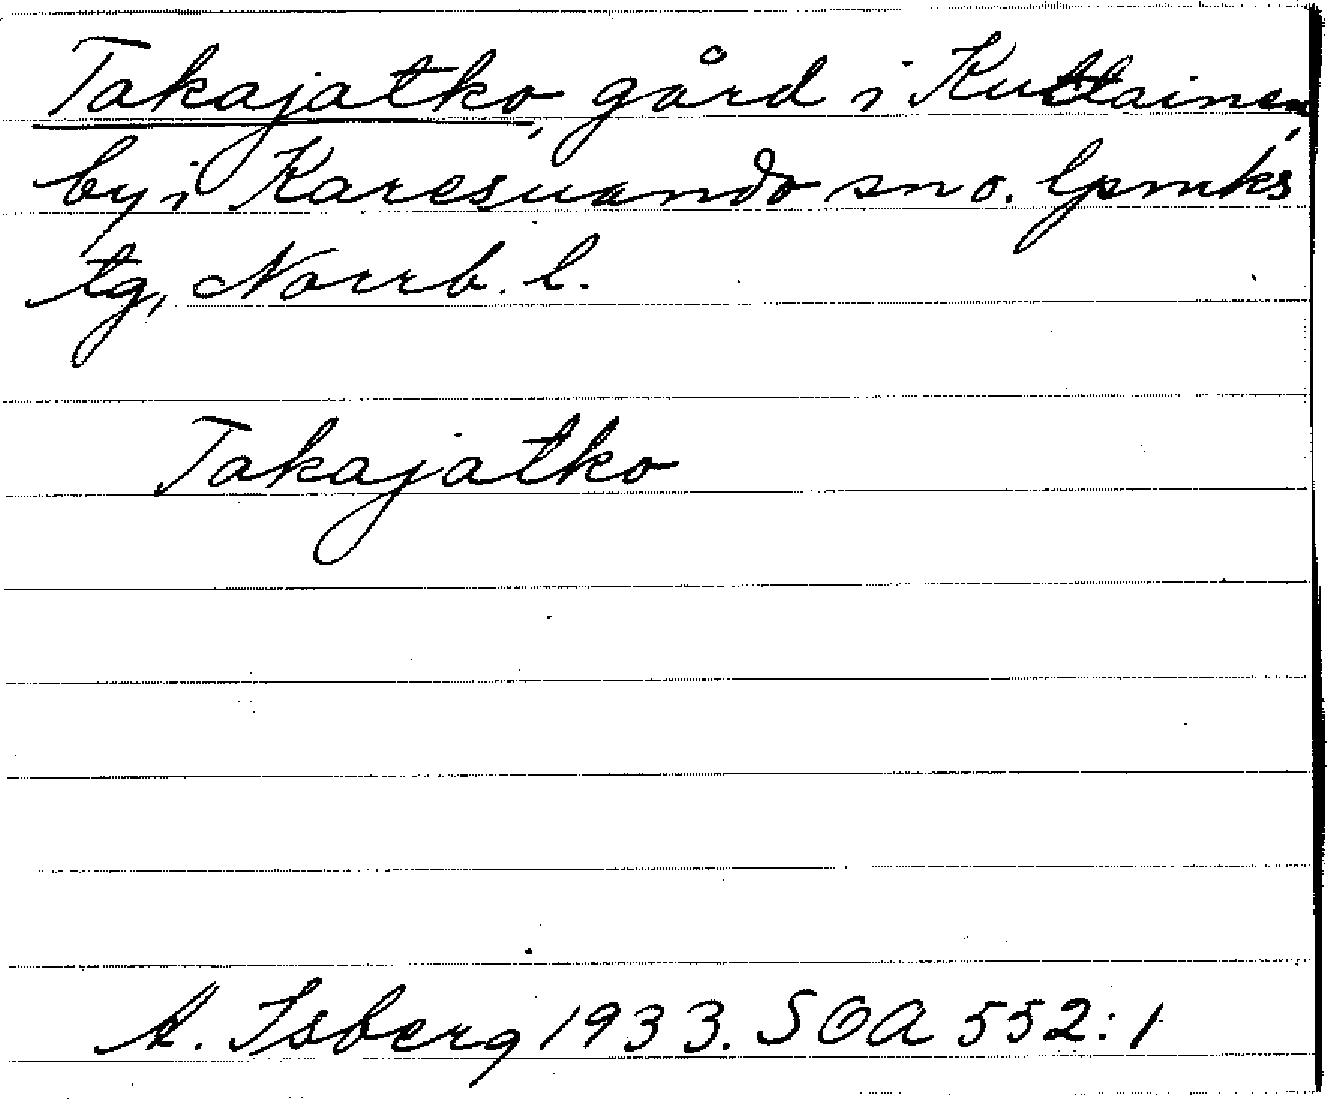 Takajatko, gård i Kuttainen,
by i Karesuando sn o. lpmks
tg, Norrb. l.
Takajatko
A. Isberg 1933. SOA 552:1